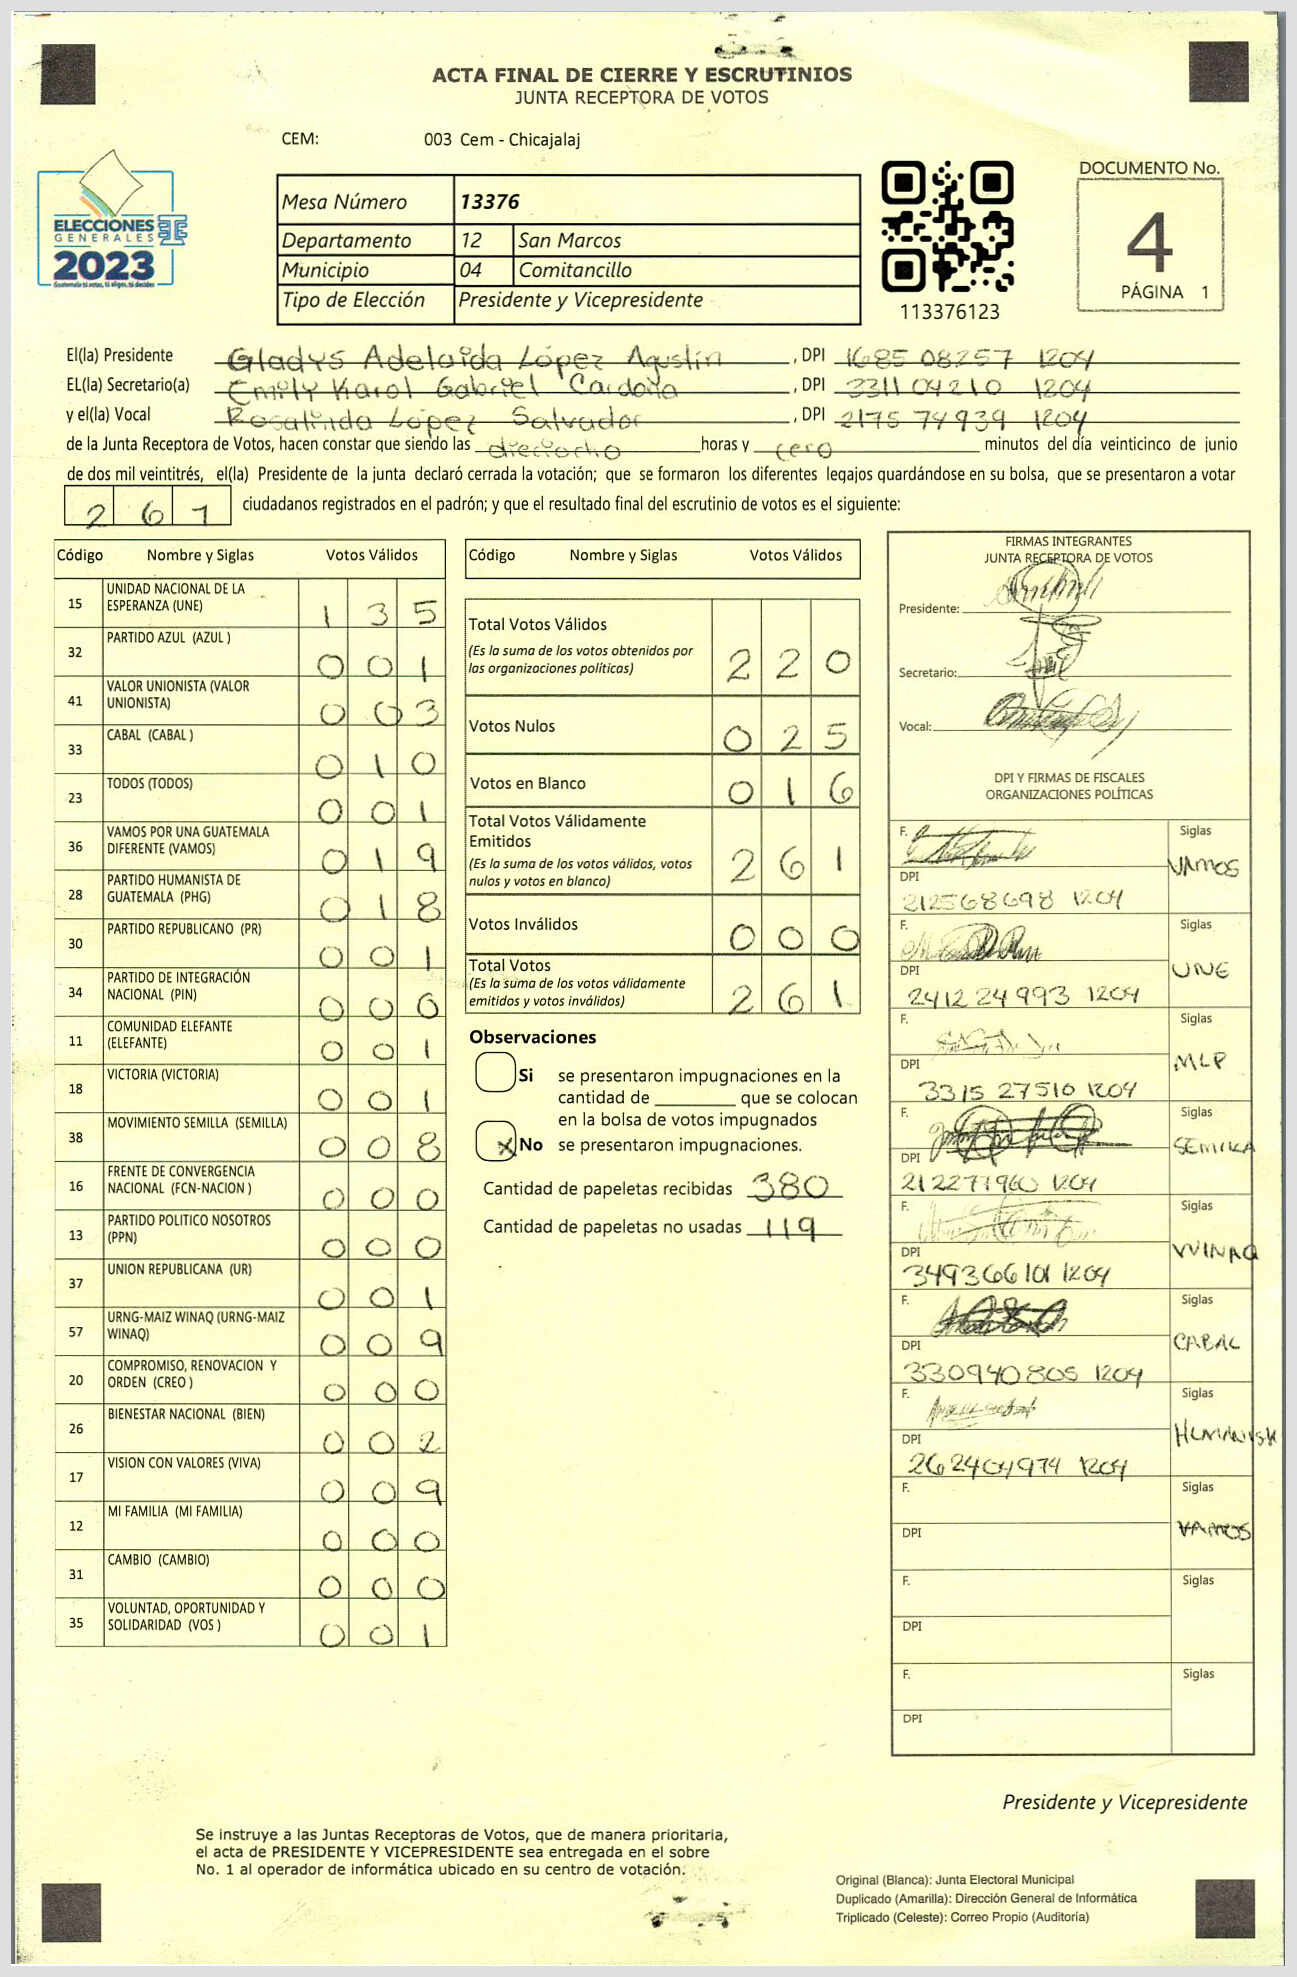 ACTA FINAL DE CIERRE Y ESCRUTINIOS
JUNTA RECEPTORA DE VOTOS
CEM: 003 Cem - Chicajalaj
ELECCIONES
GENERALES
2023
Guatemala tú votas, tú eliges, tú decides
Mesa Número 13376
Departamento 12 San Marcos
Municipio 04 Comitancillo
Tipo de Elección Presidente y Vicepresidente
113376123
DOCUMENTO No.
4
PÁGINA 1
El(la) Presidente Gladys Adelaida López Agustín , DPI 1685 08257 1204
EL(la) Secretario(a) Emily Karol Gabriel Cardona , DPI 3311 04210 1204
y el(la) Vocal Rosalinda López Salvador , DPI 2175 74939 1204
de la Junta Receptora de Votos, hacen constar que siendo las dieciocho horas y cero minutos del día veinticinco de junio
de dos mil veintitrés, el(la) Presidente de la junta declaró cerrada la votación; que se formaron los diferentes legajos quardándose en su bolsa, que se presentaron a votar
261 ciudadanos registrados en el padrón; y que el resultado final del escrutinio de votos es el siguiente:
Código Nombre y Siglas Votos Válidos
15 UNIDAD NACIONAL DE LA ESPERANZA (UNE) 1 3 5
32 PARTIDO AZUL (AZUL ) 0 0 1
41 VALOR UNIONISTA (VALOR UNIONISTA) 0 0 3
33 CABAL (CABAL ) 0 1 0
23 TODOS (TODOS) 0 0 1
36 VAMOS POR UNA GUATEMALA DIFERENTE (VAMOS) 0 1 9
28 PARTIDO HUMANISTA DE GUATEMALA (PHG) 0 1 8
30 PARTIDO REPUBLICANO (PR) 0 0 1
34 PARTIDO DE INTEGRACIÓN NACIONAL (PIN) 0 0 0
11 COMUNIDAD ELEFANTE (ELEFANTE) 0 0 1
18 VICTORIA (VICTORIA) 0 0 1
38 MOVIMIENTO SEMILLA (SEMILLA) 0 0 8
16 FRENTE DE CONVERGENCIA NACIONAL (FCN-NACION ) 0 0 0
13 PARTIDO POLITICO NOSOTROS (PPN) 0 0 0
37 UNION REPUBLICANA (UR) 0 0 1
57 URNG-MAIZ WINAQ (URNG-MAIZ WINAQ) 0 0 9
20 COMPROMISO, RENOVACION Y ORDEN (CREO ) 0 0 0
26 BIENESTAR NACIONAL (BIEN) 0 0 2
17 VISION CON VALORES (VIVA) 0 0 9
12 MI FAMILIA (MI FAMILIA) 0 0 0
31 CAMBIO (CAMBIO) 0 0 0
35 VOLUNTAD, OPORTUNIDAD Y SOLIDARIDAD (VOS ) 0 0 1
Código Nombre y Siglas Votos Válidos
Total Votos Válidos 2 2 0
(Es la suma de los votos obtenidos por
las organizaciones políticas)
Votos Nulos 0 2 5
Votos en Blanco 0 1 6
Total Votos Válidamente
Emitidos 2 6 1
(Es la suma de los votos válidos, votos
nulos y votos en blanco)
Votos Inválidos 0 0 0
Total Votos 2 6 1
(Es la suma de los votos válidamente
emitidos y votos inválidos)
Observaciones
Si se presentaron impugnaciones en la
cantidad de ________ que se colocan
en la bolsa de votos impugnados
x No se presentaron impugnaciones.
Cantidad de papeletas recibidas 380
Cantidad de papeletas no usadas 119
FIRMAS INTEGRANTES
JUNTA RECEPTORA DE VOTOS
Presidente:
Secretario:
Vocal:
DPI Y FIRMAS DE FISCALES
ORGANIZACIONES POLÍTICAS
F. Siglas VAMOS
DPI 212568698 1204
F. Siglas UNE
DPI 2412 24 993 1204
F. Siglas MLP
DPI 3315 27510 1204
F. Siglas SEMILLA
DPI 212271960 1204
F. Siglas WINAQ
DPI 349366101 1204
F. Siglas CABAL
DPI 330940805 1204
F. Siglas
DPI 262404974 1204
F. Siglas VAMOS
DPI
F. Siglas
DPI
F. Siglas
DPI
Presidente y Vicepresidente
Se instruye a las Juntas Receptoras de Votos, que de manera prioritaria,
el acta de PRESIDENTE Y VICEPRESIDENTE sea entregada en el sobre
No. 1 al operador de informática ubicado en su centro de votación.
Original (Blanca): Junta Electoral Municipal
Duplicado (Amarilla): Dirección General de Informática
Triplicado (Celeste): Correo Propio (Auditoría)